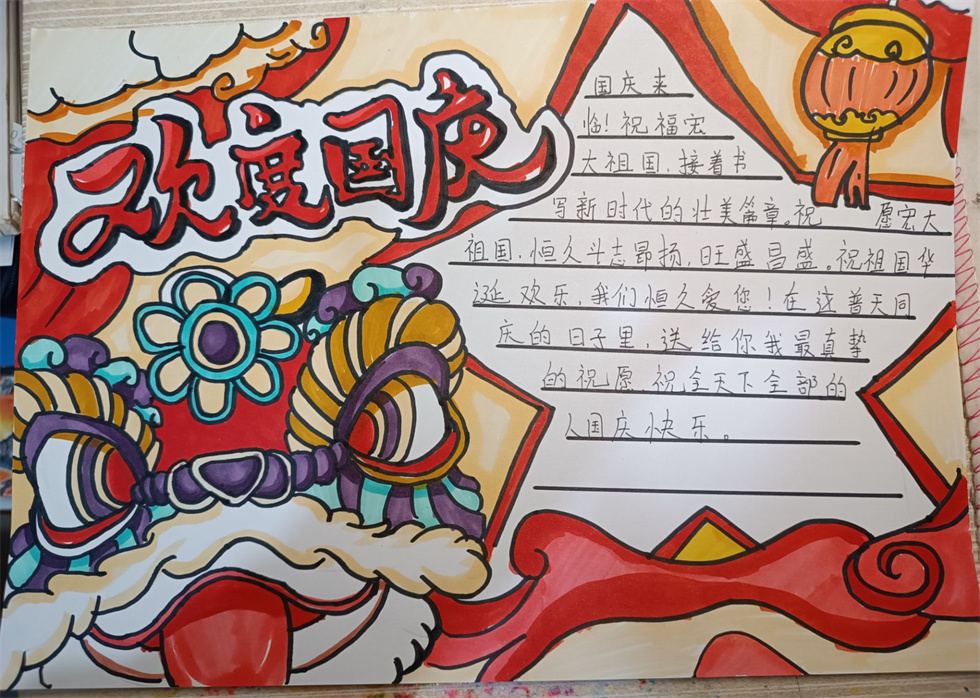 欢度国庆
国庆来
临！祝福宏
大祖国，接着书
写新时代的壮美篇章。祝 愿宏大
祖国，恒久斗志昂扬，旺盛昌盛。祝祖国华
诞欢乐，我们恒久爱您！在这普天同
庆的日子里，送给你我最真挚
的祝愿 祝全天下全部的
人国庆快乐。